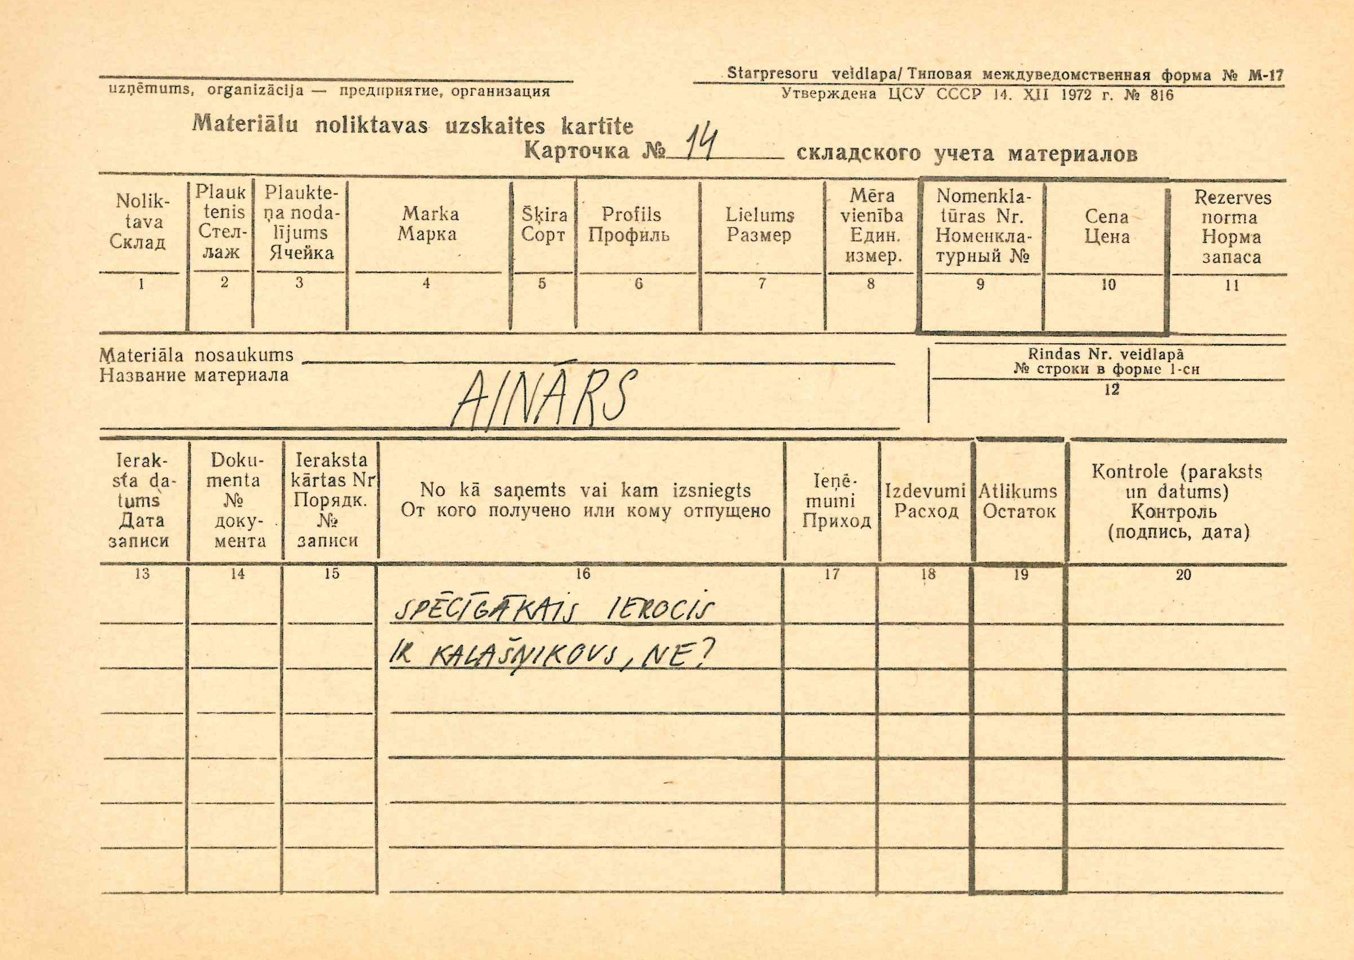 Starpresoru veidlapa/Типовая междуведомственная форма № М-17
uzņēmums, organizācija — предприятие, организация
Утверждена ЦСУ СССР 14. XII 1972 г. № 816
Materiālu noliktavas uzskaites kartīte
Карточка № 14 складского учета материалов
Nolik-
tava
Склад
Plauk
tenis
Стел-
лаж
Plaukte-
ņa noda-
lījums
Ячейка
Marka
Марка
Šķira
Сорт
Profils
Профиль
Lielums
Размер
Mēra
vienība
Един.
измер.
Nomenkla-
tūras Nr.
Номенкла-
турный №
Cena
Цена
Rezerves
norma
Норма
запаса
1 2 3 4 5 6 7 8 9 10 11
Materiāla nosaukums
Название материала
AINĀRS
Rindas Nr. veidlapā
№ строки в форме 1-сн
12
Ierak-
sta da-
tums
Дата
записи
Doku-
menta
№
доку-
мента
Ieraksta
kārtas Nr
Порядк.
№
записи
No kā saņemts vai kam izsniegts
От кого получено или кому отпущено
Ieņē-
mumi
Приход
Izdevumi
Расход
Atlikums
Остаток
Kontrole (paraksts
un datums)
Контроль
(подпись, дата)
13 14 15 16 17 18 19 20
SPĒCĪGĀKAIS IEROCIS
IR KALAŠŅIKOVS, NE?